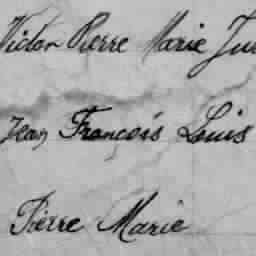 Victor Pierre Marie
Jean François Louis
Pierre Marie